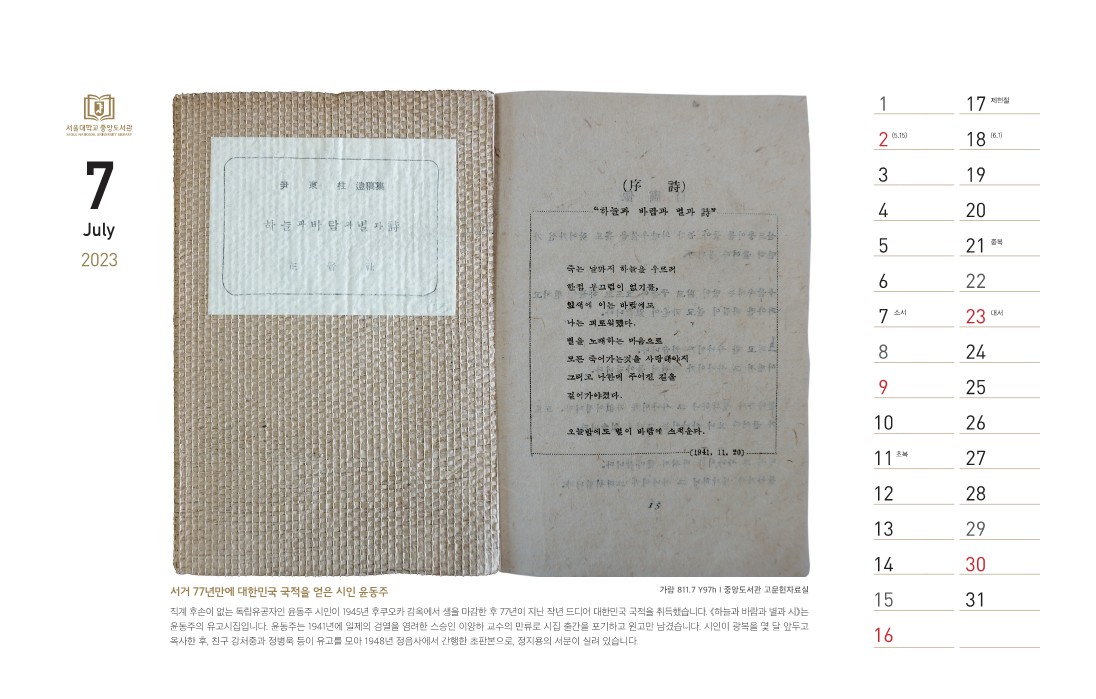 서울대학교 중앙도서관
SEOUL NATIONAL UNIVERSITY LIBRARY
7
July
2023
尹 東 柱 遺稿集
하늘과 바람과 별과 詩
正 音 社
(序 詩)
“하늘과 바람과 별과 詩”
죽는 날까지 하늘을 우르러
한점 부끄럼이 없기를,
잎새에 이는 바람에도
나는 괴로워했다.
별을 노래하는 마음으로
모든 죽어가는것을 사랑해야지
그러고 나한테 주어진 길을
걸어가야겠다.
오늘밤에도 별이 바람에 스치운다.
(1941. 11. 20)
15
서거 77년만에 대한민국 국적을 얻은 시인 윤동주
가람 811.7 Y97h I 중앙도서관 고문헌자료실
직계 후손이 없는 독립유공자인 윤동주 시인이 1945년 후쿠오카 감옥에서 생을 마감한 후 77년이 지난 작년 드디어 대한민국 국적을 취득했습니다. 《하늘과 바람과 별과 시》는
윤동주의 유고시집입니다. 윤동주는 1941년에 일제의 검열을 염려한 스승인 이양하 교수의 만류로 시집 출간을 포기하고 원고만 남겼습니다. 시인이 광복을 몇 달 앞두고
옥사한 후, 친구 강처중과 정병욱 등이 유고를 모아 1948년 정음사에서 간행한 초판본으로, 정지용의 서문이 실려 있습니다.
1
2 (5.15)
3
4
5
6
7 소서
8
9
10
11 초복
12
13
14
15
16
17 제헌절
18 (6.1)
19
20
21 중복
22
23 대서
24
25
26
27
28
29
30
31